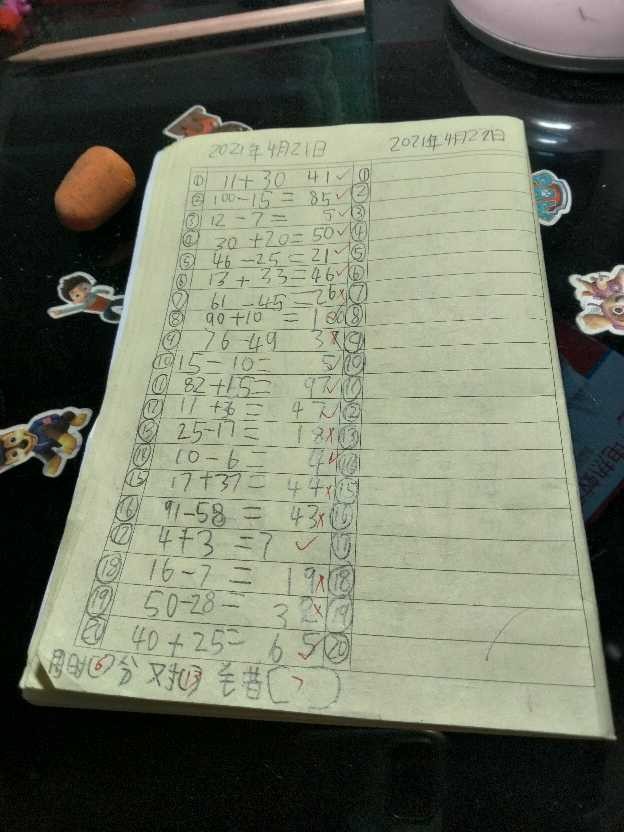 2021年4月21日
2021年4月22日
① 11+30 41 ✓ ①
② 100-15=85 ✓ ②
③ 12-7= 5 ✓ ③
④ 30+20=50 ✓ ④
⑤ 46-25=21 ✓ ⑤
⑥ 13+33=46 ✓ ⑥
⑦ 61-45=26 × ⑦
⑧ 90+10=100 ⑧
⑨ 76-49 3 × ⑨
⑩ 15-10= 5 ✓ ⑩
⑪ 82+15= 97 ✓ ⑪
⑫ 11+36= 47 ✓ ⑫
⑬ 25-17= 18 × ⑬
⑭ 10-6= 4 ✓ ⑭
⑮ 17+37= 44 × ⑮
⑯ 91-58= 43 × ⑯
⑰ 4+3=7 ✓ ⑰
⑱ 16-7= 19 × ⑱
⑲ 50-28= 32 × ⑲
⑳ 40+25= 65 ✓ ⑳
用时 6 分 对 13 7